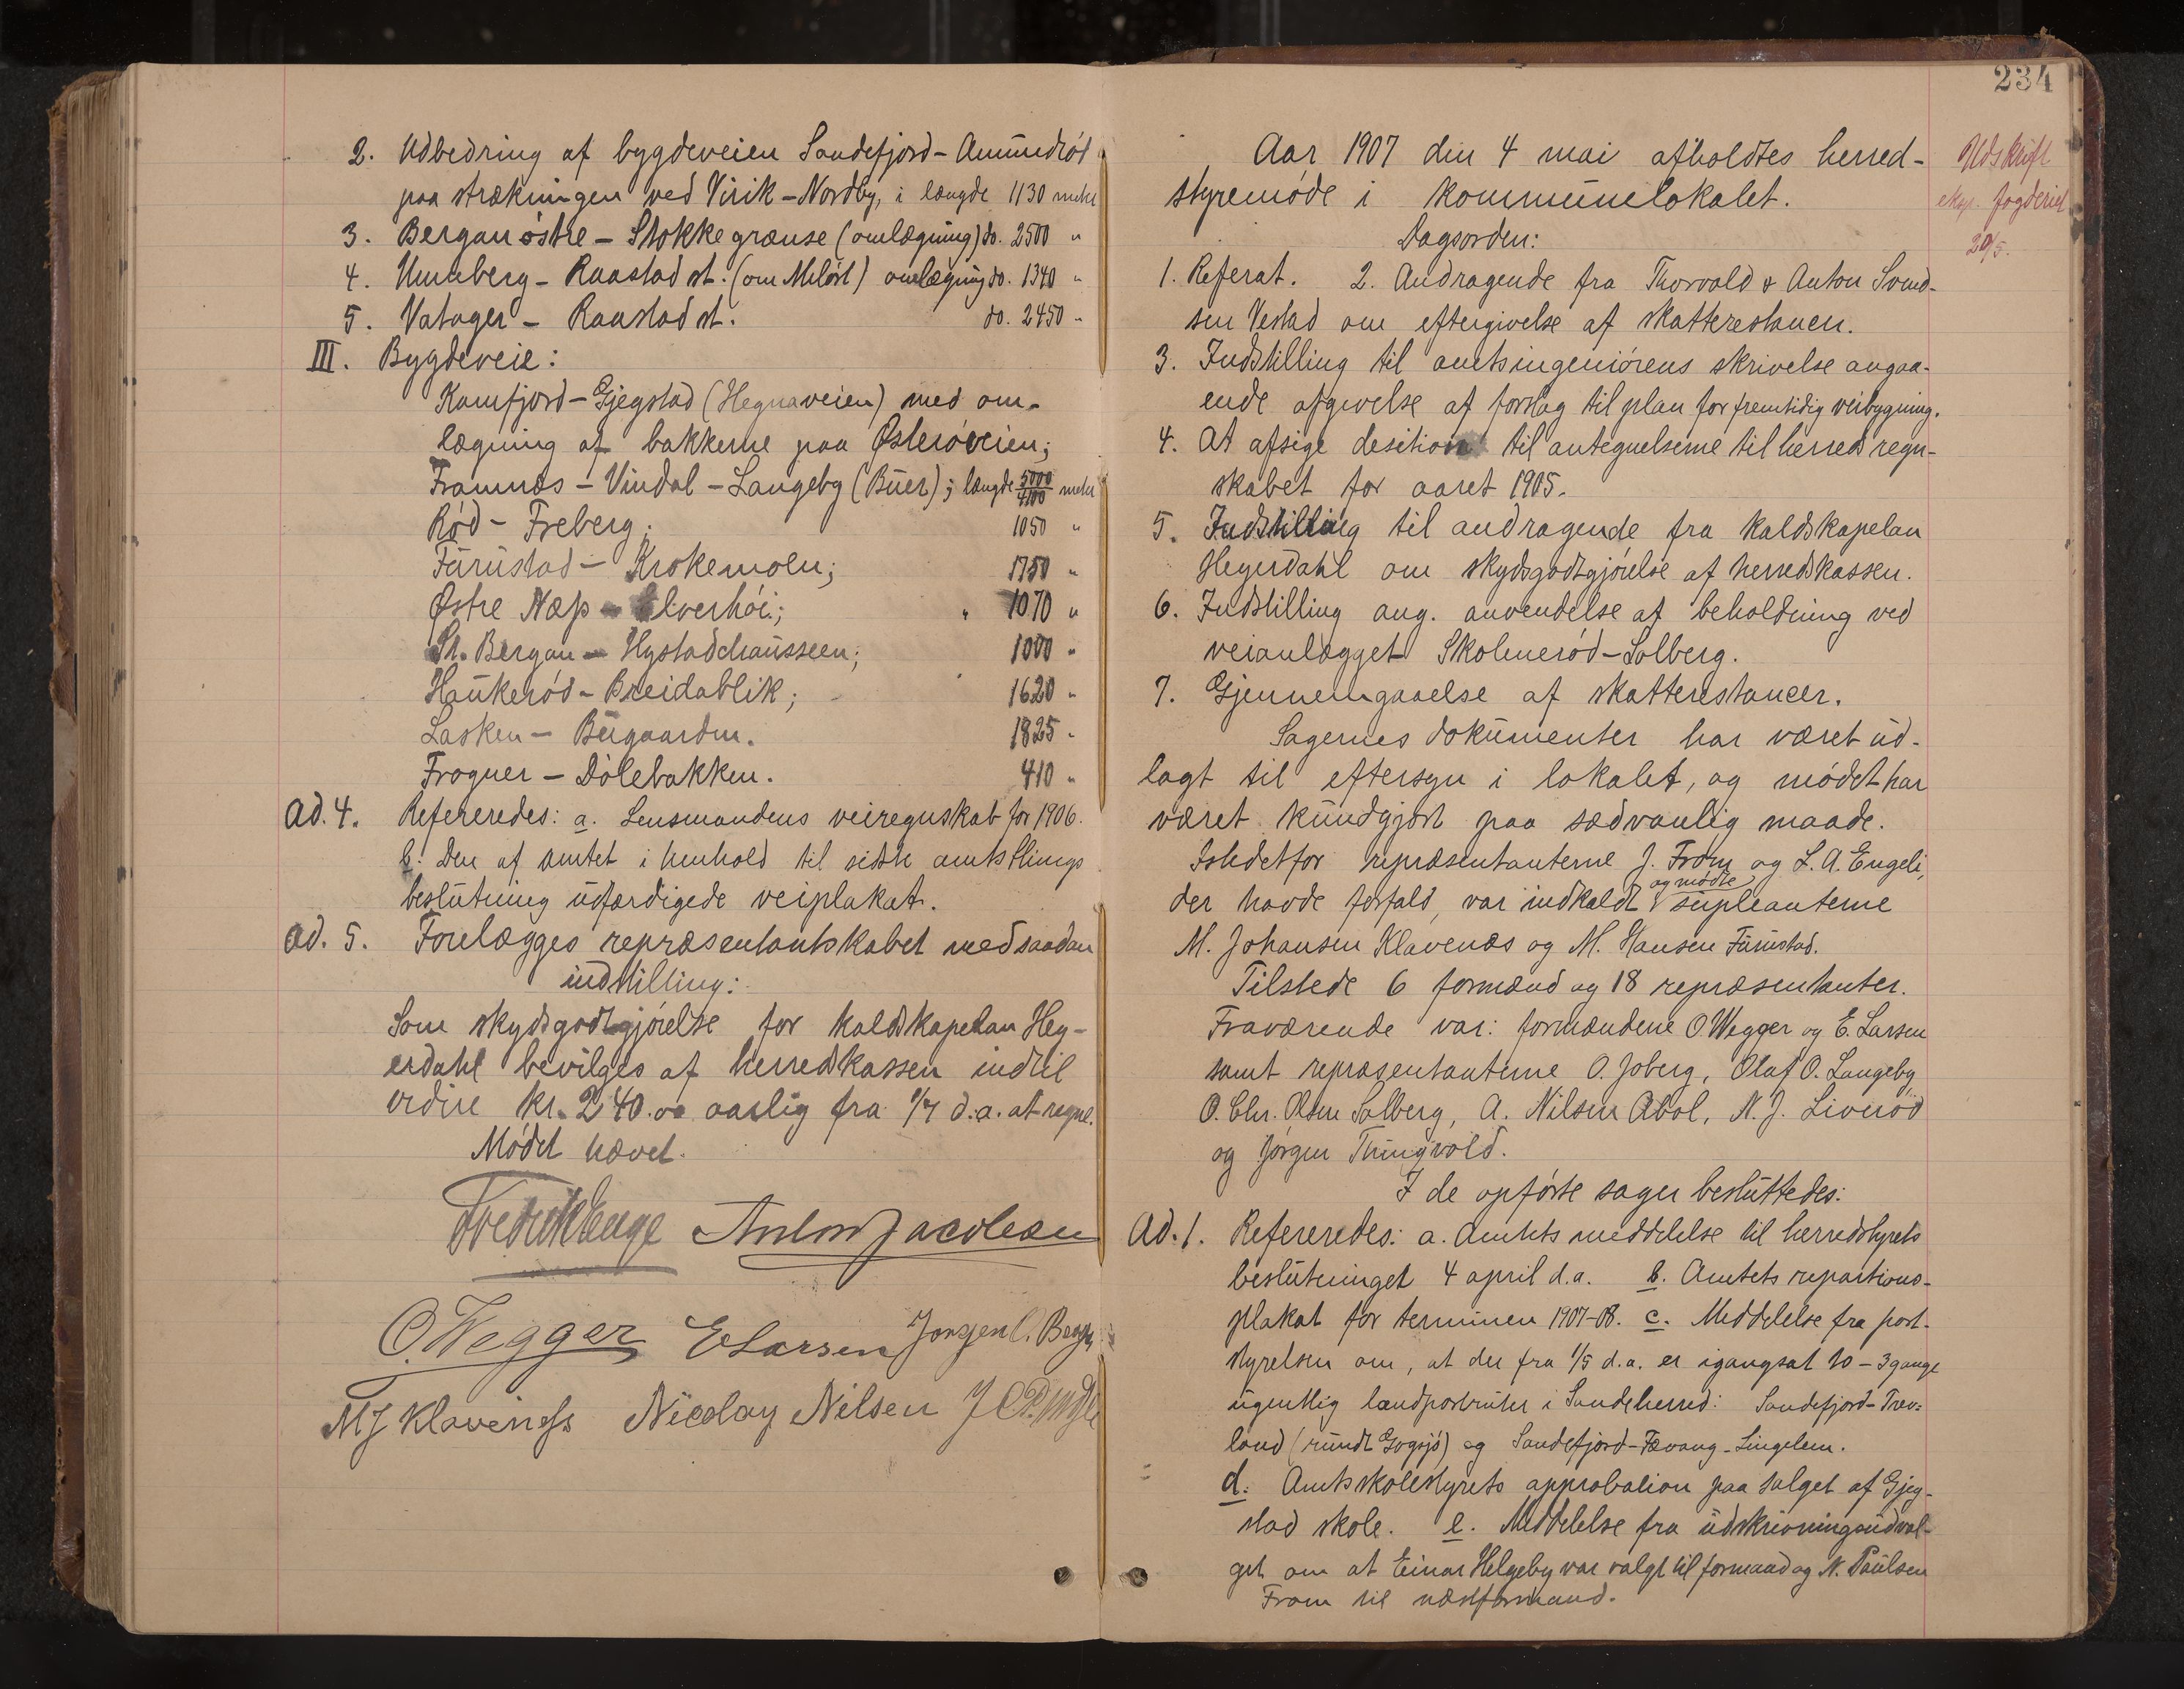 2. Udbedring af bygdeveien Sandefjord-Amundrød
paa strækningen ved Virik-Nordby, i længde 1130 meter
3. Bergan østre - Stokke grænse (omlægning) do. 2500 "
4. Unneberg - Raastad st. (om Meløst) omlægning do. 1340 "
5. Vatager - Raastad st. do. 2450 "
III. Bygdeveie:
Kamfjord - Gjegstad (Hegnaveien) med om-
lægning af bakkerne paa Østerøveien;
Framnæs - Vindal - Langeby (Buer); længde 5000/4100 meter
Rød - Freberg; 1050 "
Furustad - Krokemoen; 1750 "
Østre Næs - Elverhøi; " 1070 "
St. Bergan - Hystadchausseen; 1000 "
Haukerød - Breidablik; 1620 "
Lasken - Bugaarden. 1825 "
Frogner - Dølebakken. 410 "
Ad. 4. Refereredes: a. Lensmandens veiregnskab for 1906.
b. Den af amtet i henhold til sidste amtstings
beslutning udfærdigede veiplakat.
Ad. 5. Forelægges repræsentantskabet med saadan
indstilling:
Som skydsgodtgjørelse for kaldskapelan Hey-
erdahl bevilges af herredskassen indtil
videre kr. 240.00 aarlig fra 1/4 d.a. at regne.
Mødet hævet.
Fredrik Lange Anton Jacobsen
O. Wegger E Larsen Jørgen C. Berge
MJ Klavenæss Nicolay Nilsen
234
Aar 1907 den 4 mai afholdtes herred-
styremøde i kommunelokalet.
Udskrift
eksp. fogderiet
20/5.
Dagsorden:
1. Referat. 2. Andragende fra Thorvald & Anton Svend-
sen Vestad om eftergivelse af skatterestancen.
3. Indstilling til amtsingeniørens skrivelse angaa-
ende afgivelse af forslag til plan for fremtidig veibygning.
4. At afsige desition til antegnelserne til herredsregn-
skabet for aaret 1905.
5. Indstilling til andragende fra kaldskapelan
Heyerdahl om skydsgodtgjørelse af herredskassen.
6. Indstilling ang. anvendelse af beholdning ved
veianlægget Skolmerød-Solberg.
7. Gjennemgaaelse af skatterestancer.
Sagernes dokumenter har været ud-
lagt til eftersyn i lokalet, og mødet har
været kundgjort paa sædvanlig maade.
Istedetfor repræsentanterne J. From og L. A. Engeli,
der havde forfald, var indkaldt og mødte supleanterne
M. Johansen Klavenæs og M. Hansen Furustad.
Tilstede 6 formænd og 18 repræsentanter.
Fraværende var: formændene O. Wegger og E. Larsen
samt repræsentanterne O. Joberg, Olaf O. Langeby,
O. Chr. Olsen Solberg, A. Nilsen Abol, N. J. Liverød
og Jørgen Thingvold.
I de opførte sager besluttedes:
Ad. 1. Refereredes: a. Amtets meddelelse til herredstyrets
beslutninget 4 april d.a. b. Amtets repartions-
plakat for terminen 1907-08. c. Meddelelse fra post-
styrelsen om, at der fra 1/5 d.a. er igangsat to - 3 gange
ugentlig landpostruter i Sandeherred: Sandefjord-Trev-
land (rundt Gogsjø) og Sandefjord-Fevang-Lingelem.
d. Amtsskolestyrets approbation paa salget af Gjeg-
stad skole. e. Meddelelse fra udskrivningsudval-
get om at Einar Helgeby var valgt til formand og N. Paulsen
From til næstformand.